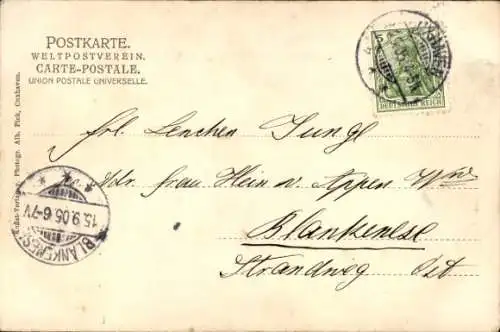 POSTKARTE.
WELTPOSTVEREIN.
CARTE-POSTALE.
UNION POSTALE UNIVERSELLE.
5
DEUTSCHES REICH
Frl. Lenchen Jungl
Adr. Frau Hein v. Appen Wwe
Blankenese
Strandweg Ost
15.9.05.6-7V
BLANKENESE
Photogr. Alb. Pick, Cuxhaven.